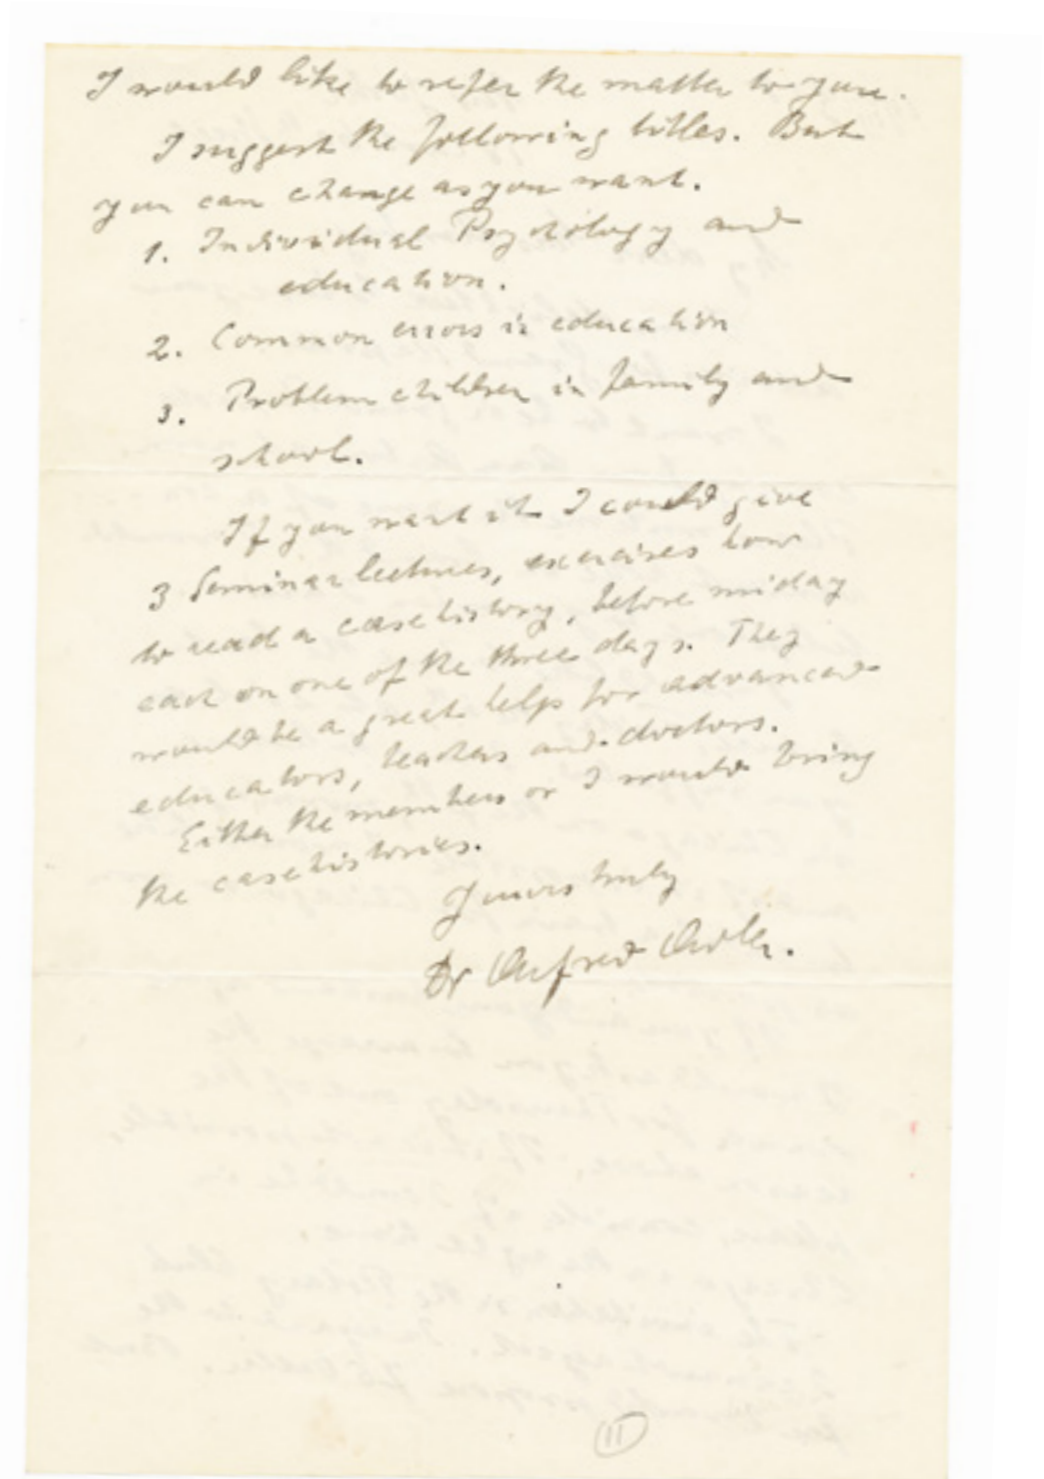 I would like to refer the matter to you.
I suggest the following titles. But
you can change as you want.
1. Individual Psychology and
education.
2. Common errors in education
3. Problem children in family and
school.
If you want it I could give
3 Seminar lectures, exercises how
to read a case history, before miday
each on one of the three days. They
would be a great help for advanced
educators, teachers and doctors.
Either the members or I would bring
the case histories.
Yours truly
Dr Alfred Adler.
11